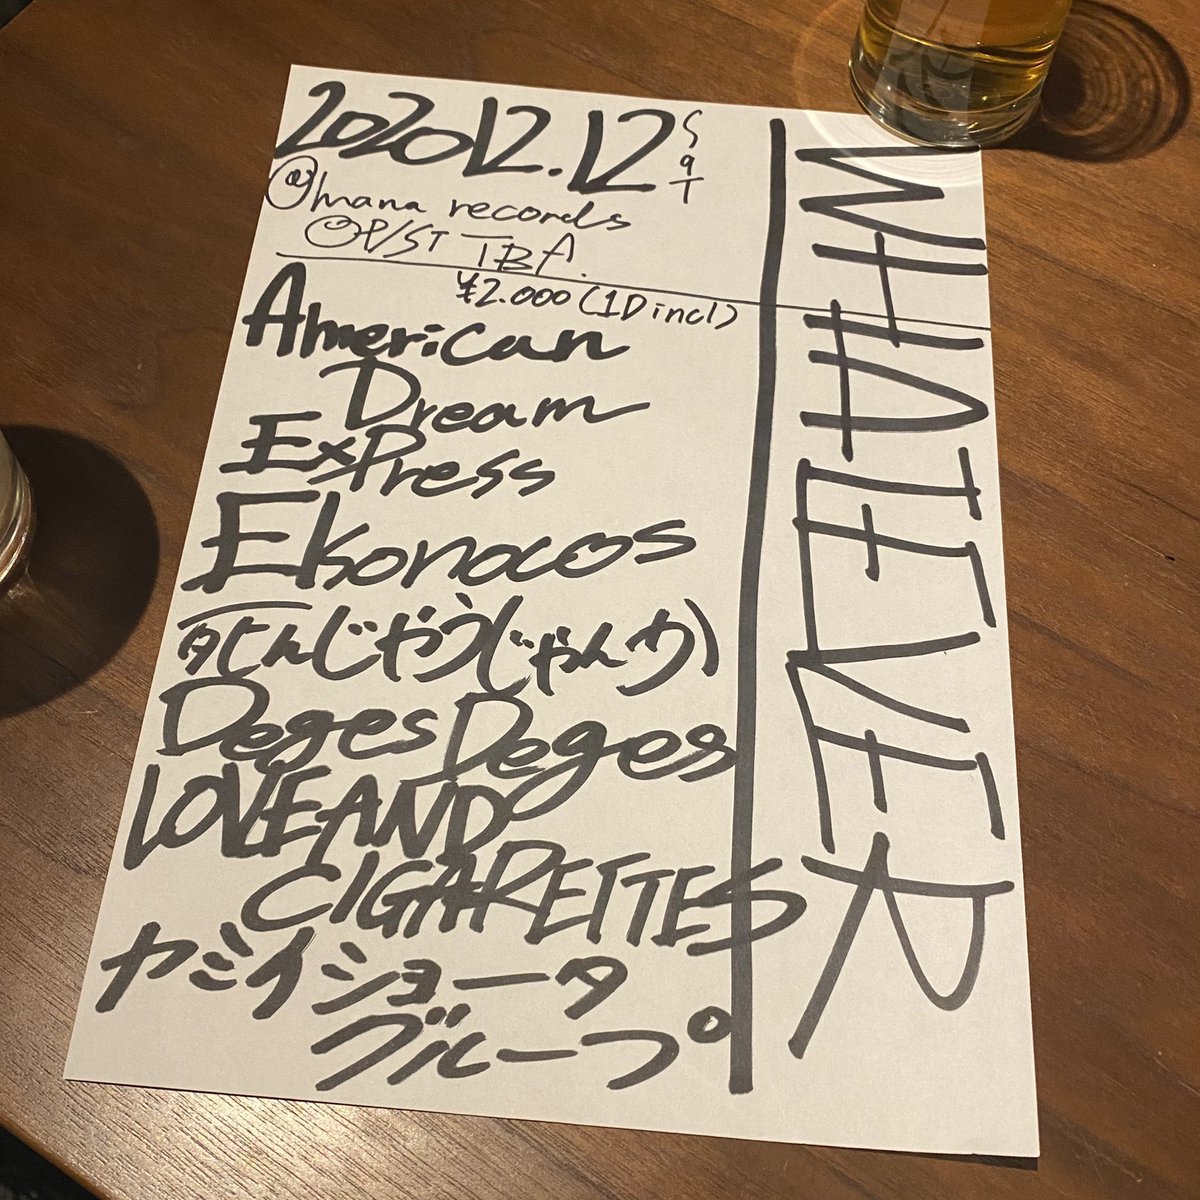 202012.12 SaT
@mana records
OP/ST TBA.
¥2.000(1Dincl)
American
Dream
Express
Ekonocos
死んじゃうじゃんか
Deges Deges
LOVE AND
CIGARETTES
ヤミイショータ
グループ
WHATEVER